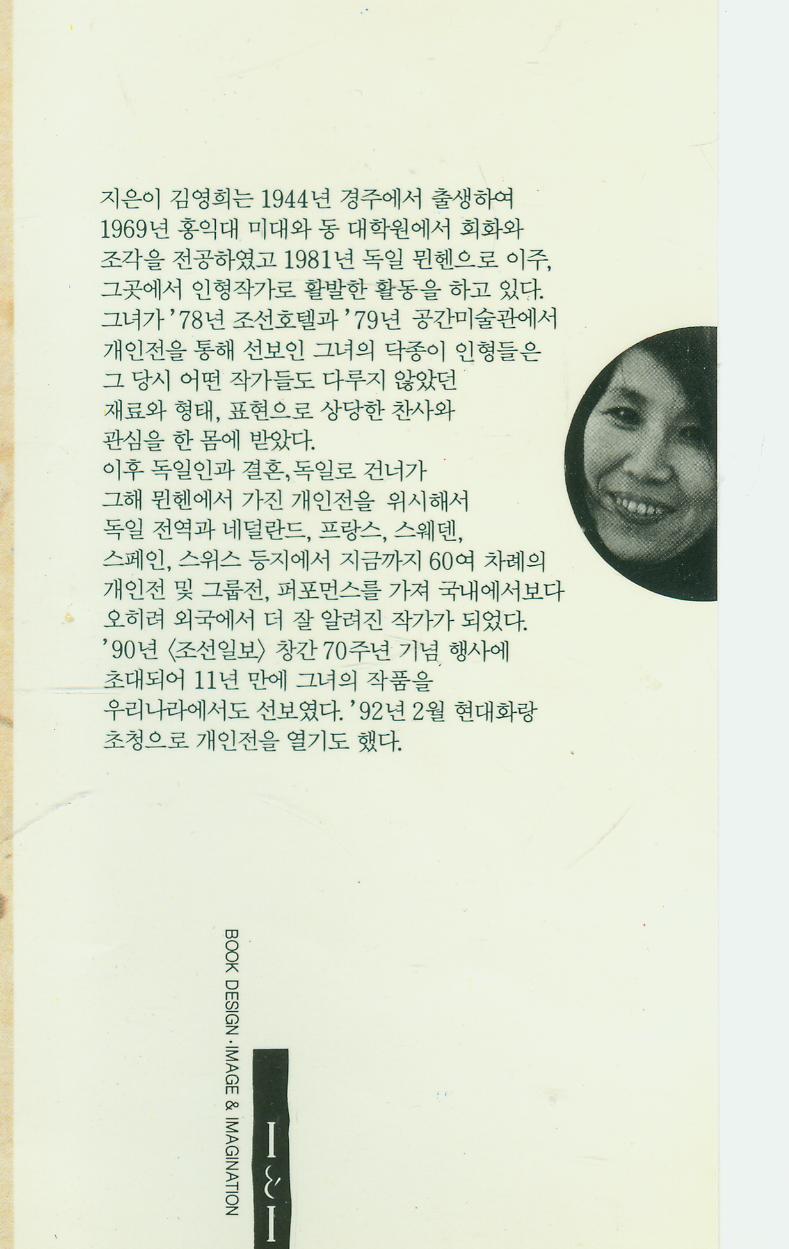 지은이 김영희는 1944년 경주에서 출생하여
1969년 홍익대 미대와 동 대학원에서 회화와
조각을 전공하였고 1981년 독일 뮌헨으로 이주,
그곳에서 인형작가로 활발한 활동을 하고 있다.
그녀가 '78년 조선호텔과 '79년 공간미술관에서
개인전을 통해 선보인 그녀의 닥종이 인형들은
그 당시 어떤 작가들도 다루지 않았던
재료와 형태, 표현으로 상당한 찬사와
관심을 한 몸에 받았다.
이후 독일인과 결혼,독일로 건너가
그해 뮌헨에서 가진 개인전을 위시해서
독일 전역과 네덜란드, 프랑스, 스웨덴,
스페인, 스위스 등지에서 지금까지 60여 차례의
개인전 및 그룹전, 퍼포먼스를 가져 국내에서보다
오히려 외국에서 더 잘 알려진 작가가 되었다.
'90년 〈조선일보〉 창간 70주년 기념 행사에
초대되어 11년 만에 그녀의 작품을
우리나라에서도 선보였다. '92년 2월 현대화랑
초청으로 개인전을 열기도 했다.
BOOK DESIGN·IMAGE & IMAGINATION
I & I